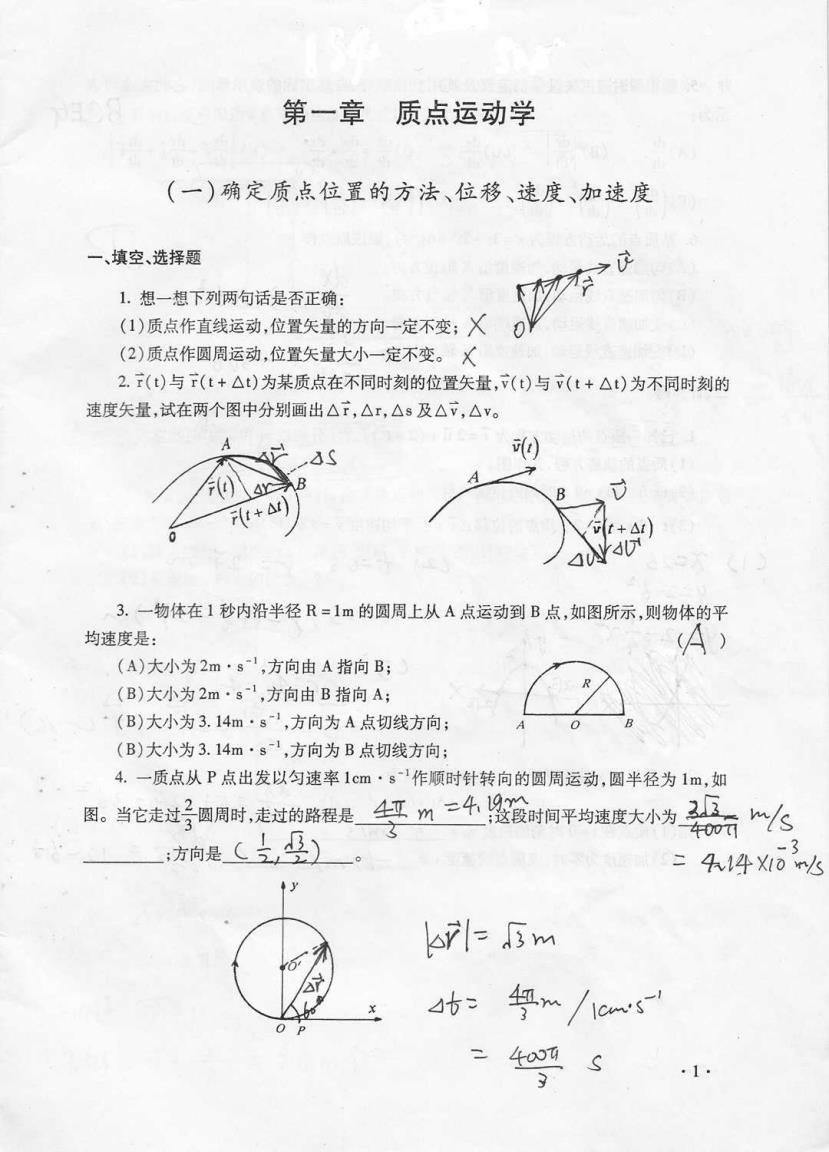 第一章 质点运动学
(一)确定质点位置的方法、位移、速度、加速度
一、填空、选择题
1. 想一想下列两句话是否正确:
(1)质点作直线运动,位置矢量的方向一定不变; ×
(2)质点作圆周运动,位置矢量大小一定不变。 ×
O r⃗ v⃗
2. r⃗(t)与r⃗(t+△t)为某质点在不同时刻的位置矢量,v⃗(t)与v⃗(t+△t)为不同时刻的
速度矢量,试在两个图中分别画出△r⃗,△r,△s及△v⃗,△v。
A △r⃗ △S
r⃗(t) △r B
r⃗(t+△t)
O
v⃗(t)
A
B v⃗
v⃗(t+△t)
△v △v⃗
3. 一物体在1秒内沿半径R=1m的圆周上从A点运动到B点,如图所示,则物体的平
均速度是: (A)
(A)大小为2m·s⁻¹,方向由A指向B;
(B)大小为2m·s⁻¹,方向由B指向A;
(B)大小为3.14m·s⁻¹,方向为A点切线方向;
(B)大小为3.14m·s⁻¹,方向为B点切线方向;
R
A O B
4. 一质点从P点出发以匀速率1cm·s⁻¹作顺时针转向的圆周运动,圆半径为1m,如
图。当它走过2/3圆周时,走过的路程是 4π/3 m =4.19m ;这段时间平均速度大小为 3√3/400π m/s
;方向是 (1/2, √3/2) 。 = 4.14×10⁻³ m/s
y
O'
△r⃗
60°
x
O P
|△r⃗| = √3 m
△t = 4π/3 m / 1cm·s⁻¹
= 400π/3 s
·1·